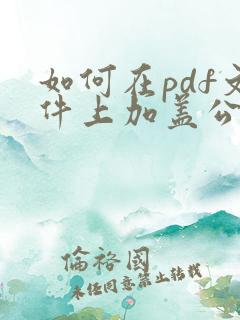 如何在pdf文
件上加盖公
倫裕國
未经同意禁止转载